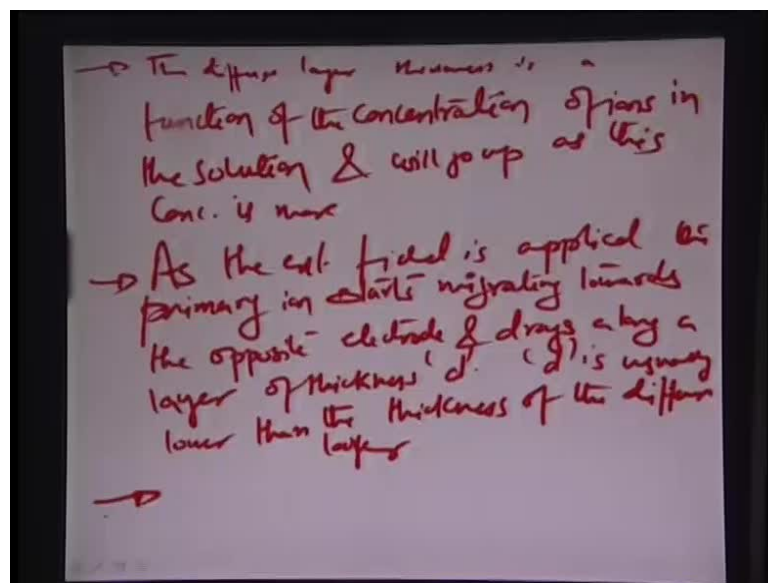 → The diffuse layer thickness is a
function of the concentration of ions in
the solution & will go up as this
Conc. is more
→ As the ext. field is applied the
primary ion starts migrating towards
the opposite electrode & drags along a
layer of thickness 'd'. 'd' is usually
lower than the thickness of the diffuse
layer
→